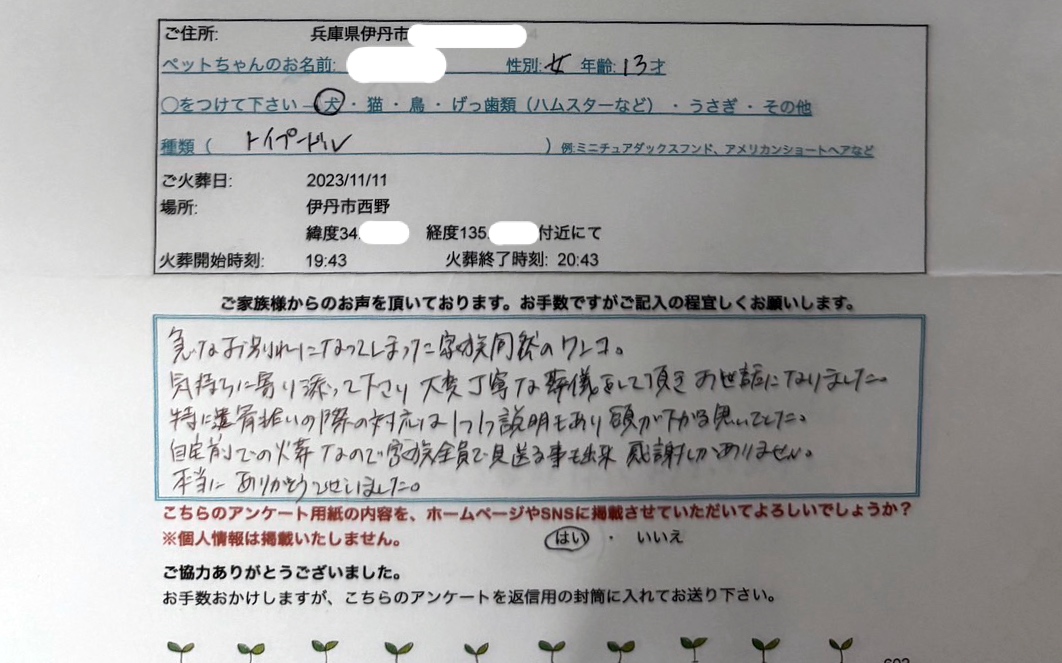 ご住所: 兵庫県伊丹市
ペットちゃんのお名前: 性別:女 年齢:13才
○をつけて下さい→犬・猫・鳥・げっ歯類（ハムスターなど）・うさぎ・その他
種類（ トイプードル ）例:ミニチュアダックスフンド、アメリカンショートヘアなど
ご火葬日: 2023/11/11
場所: 伊丹市西野
緯度34. 経度135. 付近にて
火葬開始時刻: 19:43 火葬終了時刻: 20:43
ご家族様からのお声を頂いております。お手数ですがご記入の程宜しくお願いします。
急なお別れになってしまった家族同然のワンコ。
気持ちに寄り添って下さり大変丁寧な葬儀をして頂きお世話になりました。
特に遺骨拾いの際の対応は1つ1つ説明もあり頭が下がる思いでした。
自宅前での火葬なので家族全員で見送る事も出来 感謝しかありません。
本当にありがとうございました。
こちらのアンケート用紙の内容を、ホームページやSNSに掲載させていただいてよろしいでしょうか？
※個人情報は掲載いたしません。 はい ・ いいえ
ご協力ありがとうございました。
お手数おかけしますが、こちらのアンケートを返信用の封筒に入れてお送り下さい。